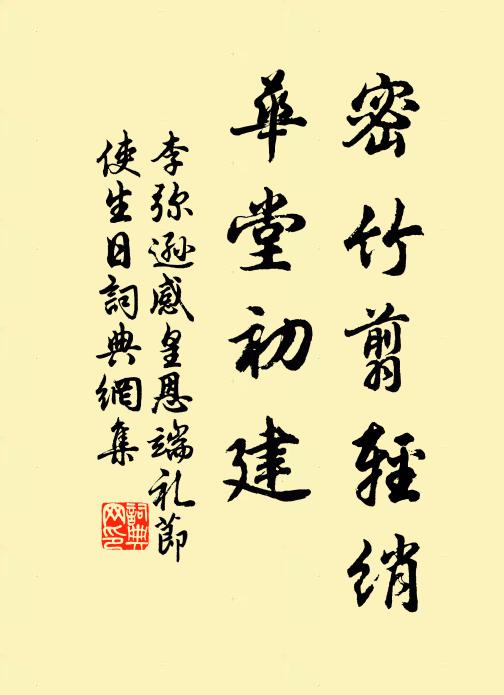 密竹翦輕綃
華堂初建
李弥遜感皇恩端礼節
使生日詞典網集
詞典
网印